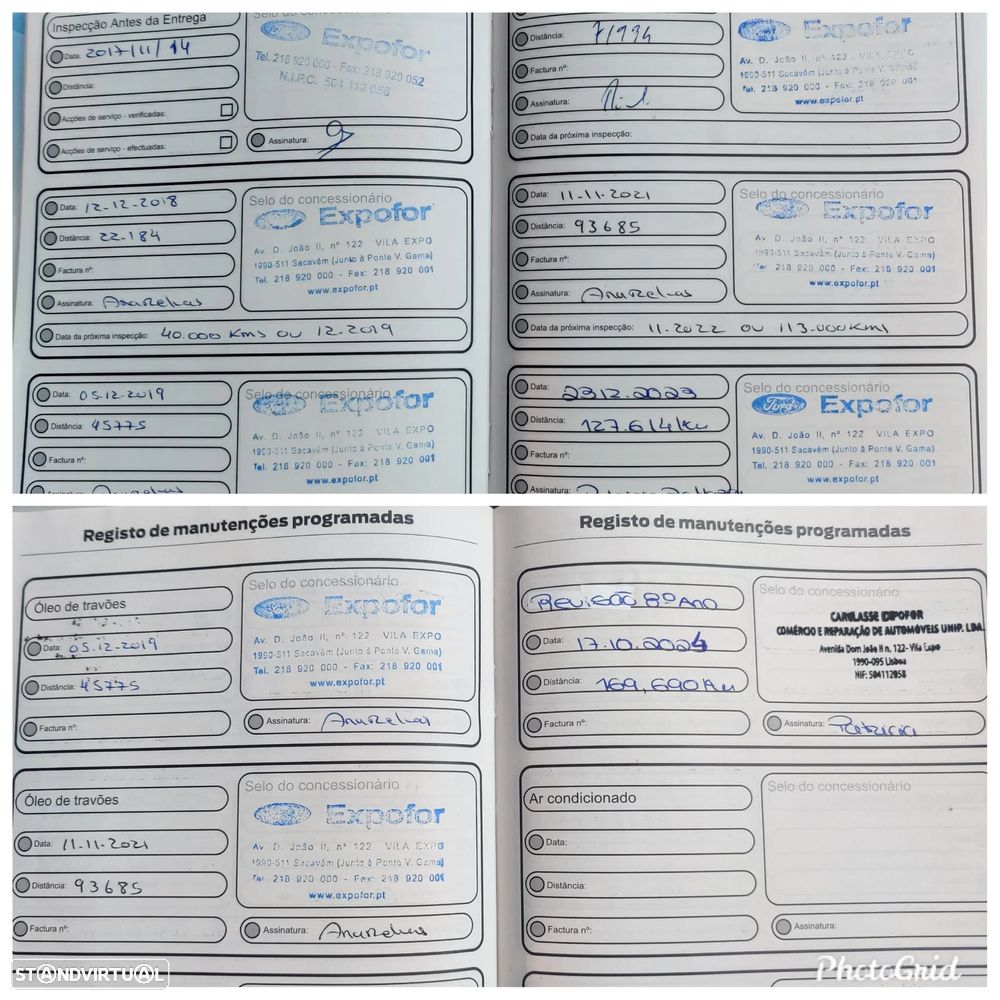 Inspecção Antes da Entrega
Data: 2017/11/14
Distância:
Acções de serviço - verificadas:
Acções de serviço - efectuadas:
Selo do concessionário
Ford Expofor
Tel. 218 920 000 - Fax: 218 920 052
N.I.P.C. 504 112 058
Assinatura:
Data: 12-12-2018
Distância: 22.184
Factura nº:
Assinatura: Ana Relvas
Data da próxima inspecção: 40.000 Kms ou 12-2019
Selo do concessionário
Ford Expofor
Av. D. João II, nº 122 VILA EXPO
1990-511 Sacavém (Junto à Ponte V. Gama)
Tel. 218 920 000 - Fax: 218 920 001
www.expofor.pt
Data: 05.12.2019
Distância: 45775
Factura nº:
Assinatura: Ana Relvas
Selo do concessionário
Ford Expofor
Av. D. João II, nº 122 VILA EXPO
1990-511 Sacavém (Junto à Ponte V. Gama)
Tel. 218 920 000 - Fax: 218 920 001
www.expofor.pt
Distância: 71994
Factura nº:
Assinatura:
Data da próxima inspecção:
Ford Expofor
Av. D. João II, nº 122 VILA EXPO
1990-511 Sacavém (Junto à Ponte V. Gama)
Tel. 218 920 000 - Fax: 218 920 001
www.expofor.pt
Data: 11-11-2021
Distância: 93685
Factura nº:
Assinatura: Ana Relvas
Data da próxima inspecção: 11-2022 ou 113.000Kms
Selo do concessionário
Ford Expofor
Av. D. João II, nº 122 VILA EXPO
1990-511 Sacavém (Junto à Ponte V. Gama)
Tel. 218 920 000 - Fax: 218 920 001
www.expofor.pt
Data: 23.12.2023
Distância: 127.614Km
Factura nº:
Assinatura:
Selo do concessionário
Ford Expofor
Av. D. João II, nº 122 VILA EXPO
1990-511 Sacavém (Junto à Ponte V. Gama)
Tel. 218 920 000 - Fax: 218 920 001
www.expofor.pt
Registo de manutenções programadas
Óleo de travões
Data: 05.12.2019
Distância: 45775
Factura nº:
Selo do concessionário
Ford Expofor
Av. D. João II, nº 122 VILA EXPO
1990-511 Sacavém (Junto à Ponte V. Gama)
Tel. 218 920 000 - Fax: 218 920 001
www.expofor.pt
Assinatura: Ana Relvas
Óleo de travões
Data: 11-11-2021
Distância: 93685
Factura nº:
Selo do concessionário
Ford Expofor
Av. D. João II, nº 122 VILA EXPO
1990-511 Sacavém (Junto à Ponte V. Gama)
Tel. 218 920 000 - Fax: 218 920 001
www.expofor.pt
Assinatura: Ana Relvas
Registo de manutenções programadas
Revisão 8º Ano
Data: 17.10.2024
Distância: 169,690Km
Factura nº:
Selo do concessionário
CARCLASSE EXPOFOR
COMÉRCIO E REPARAÇÃO DE AUTOMÓVEIS UNIP. LDA.
Avenida Dom João II n. 122- Vila Expo
1990-095 Lisboa
NIF: 504112058
Assinatura: Patricia
Ar condicionado
Data:
Distância:
Factura nº:
Selo do concessionário
Assinatura:
STANDVIRTUAL
PhotoGrid